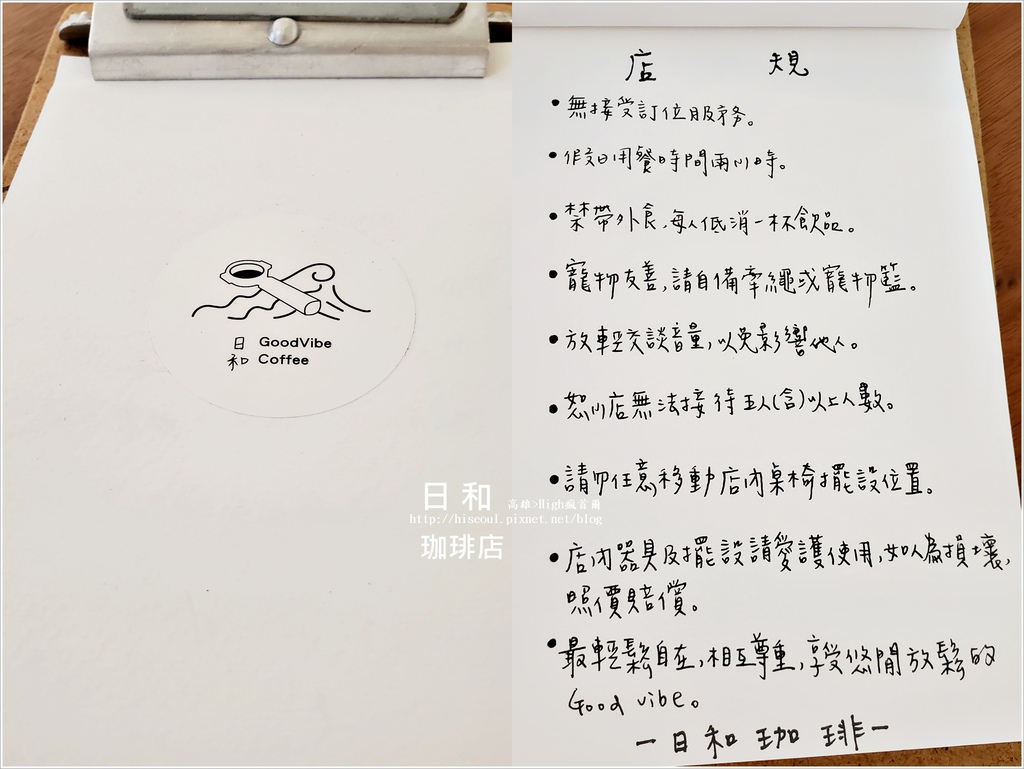 日 GoodVibe
和 Coffee
日和
高雄>High瘋首爾
http://hiseoul.pixnet.net/blog
珈琲店
店 規
•無接受訂位服務。
•假日用餐時間兩小時。
•禁帶外食,每人低消一杯飲品。
•寵物友善,請自備牽繩或寵物籃。
•放輕交談音量,以免影響他人。
•恕小店無法接待五人(含)以上人數。
•請勿任意移動店內桌椅擺設位置。
•店內器具及擺設請愛護使用,如人為損壞,
照價賠償。
•最輕鬆自在,相互尊重,享受悠閒放鬆的
Good vibe。
－日和珈琲－